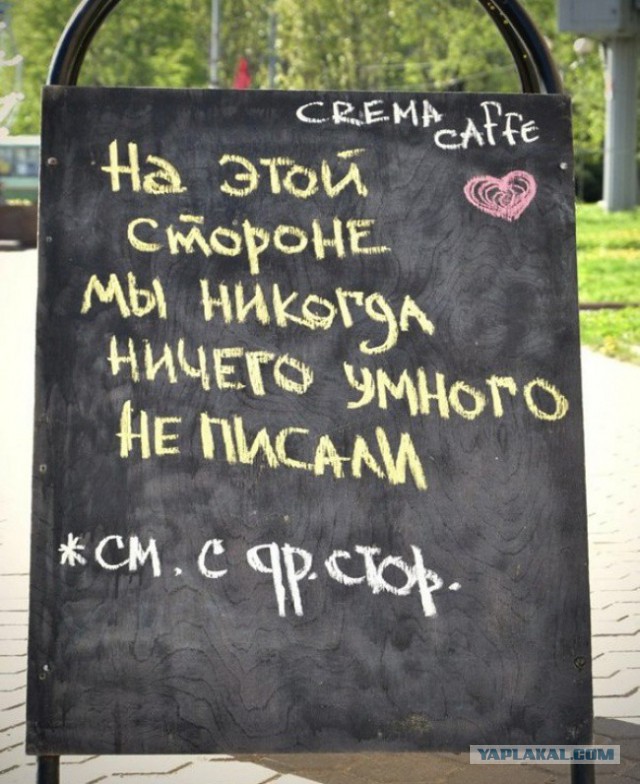 CREMA
CAFFE
На этой
стороне
мы никогда
ничего умного
не писали
*см. с др. стор.
YAPLAKAL.COM